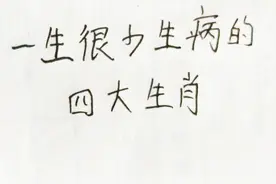 一生很少生病的
四大生肖